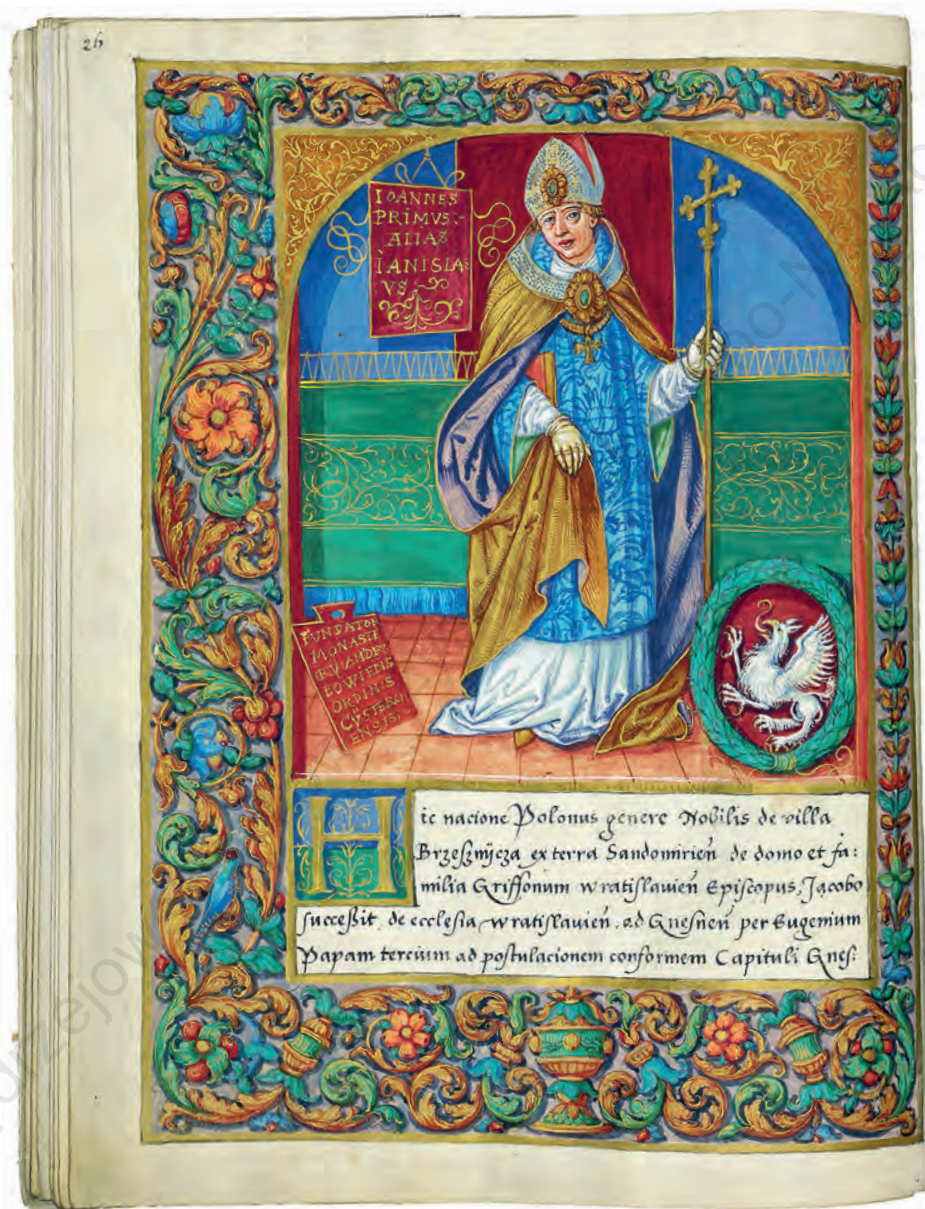 26
IOANNES
PRIMVS
ALIAS
IANISLA
VS
FUNDATOR
MONASTE
RII ANDRE
IOWIENS
ORDINIS
CYSTERCI
ENSIS
Hic nacione Polonus genere Nobilis de villa
Brzeßnijcza ex terra Sandomirien̄ de domo et fa:
milia Griffonum wratislauien̄ Episcopus, Jacobo
succeßit, de ecclesia wratislauien̄ ad Gnesnen̄ per Eugenium
Papam tercium ad postulacionem conformem Capituli Gnes: